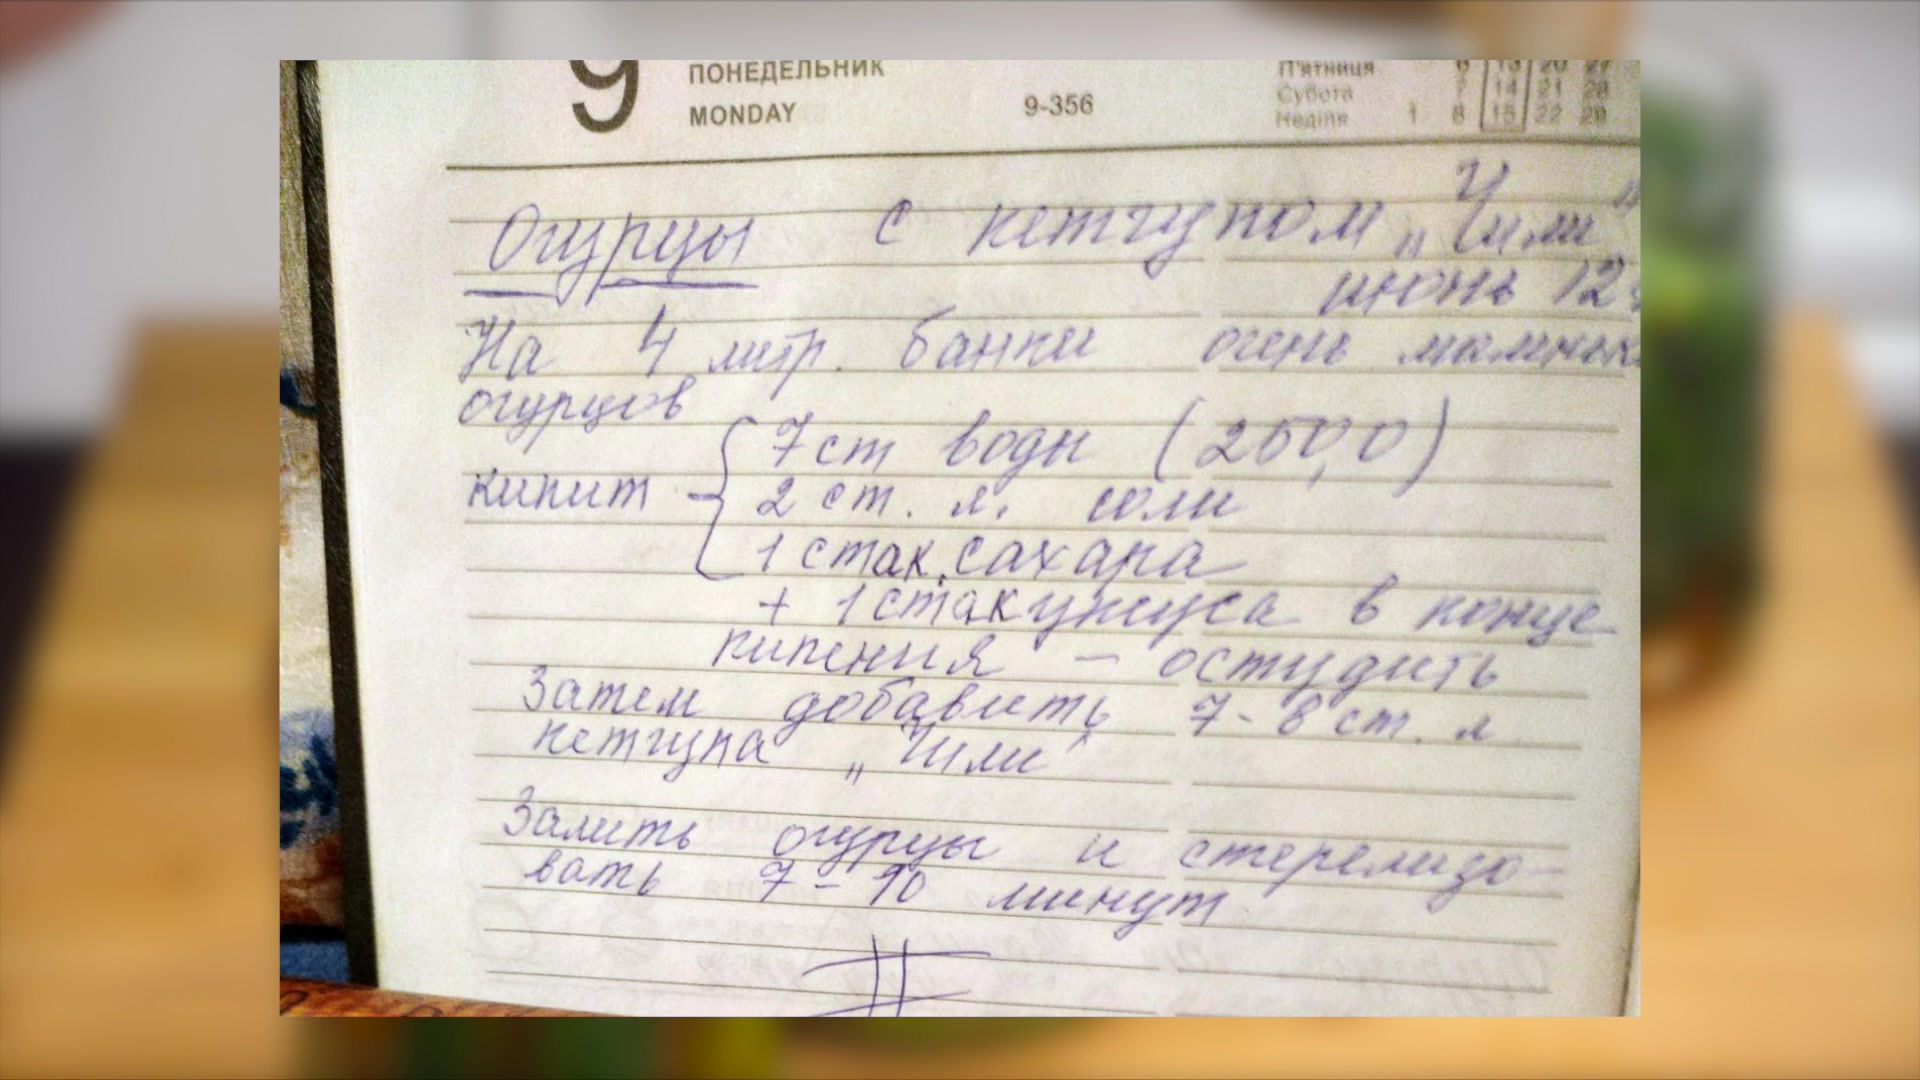 9 ПОНЕДЕЛЬНИК
MONDAY 9-356
П'ятниця 6 13 20 27
Субота 7 14 21 28
Неділя 1 8 15 22 29
Огурцы с кетчупом „Чили"
июнь 12
На 4 литр. банки очень
огурцов
7 ст воды (250,0)
кипит 2 ст. л. соли
1 стак. сахара
+ 1 стак уксуса в конце
кипения – остудить
Затем добавить 7-8 ст. л
кетчупа „Чили"
Залить огурцы и стерелизо-
вать 7-10 минут